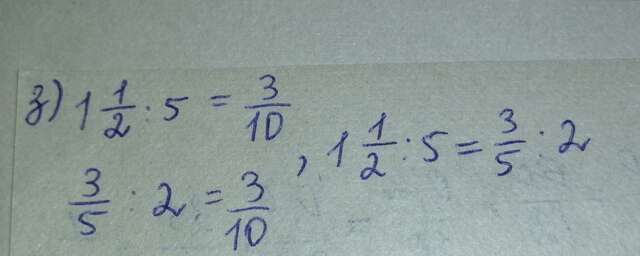 з) 1 1/2 : 5 = 3/10
3/5 : 2 = 3/10 , 1 1/2 : 5 = 3/5 : 2